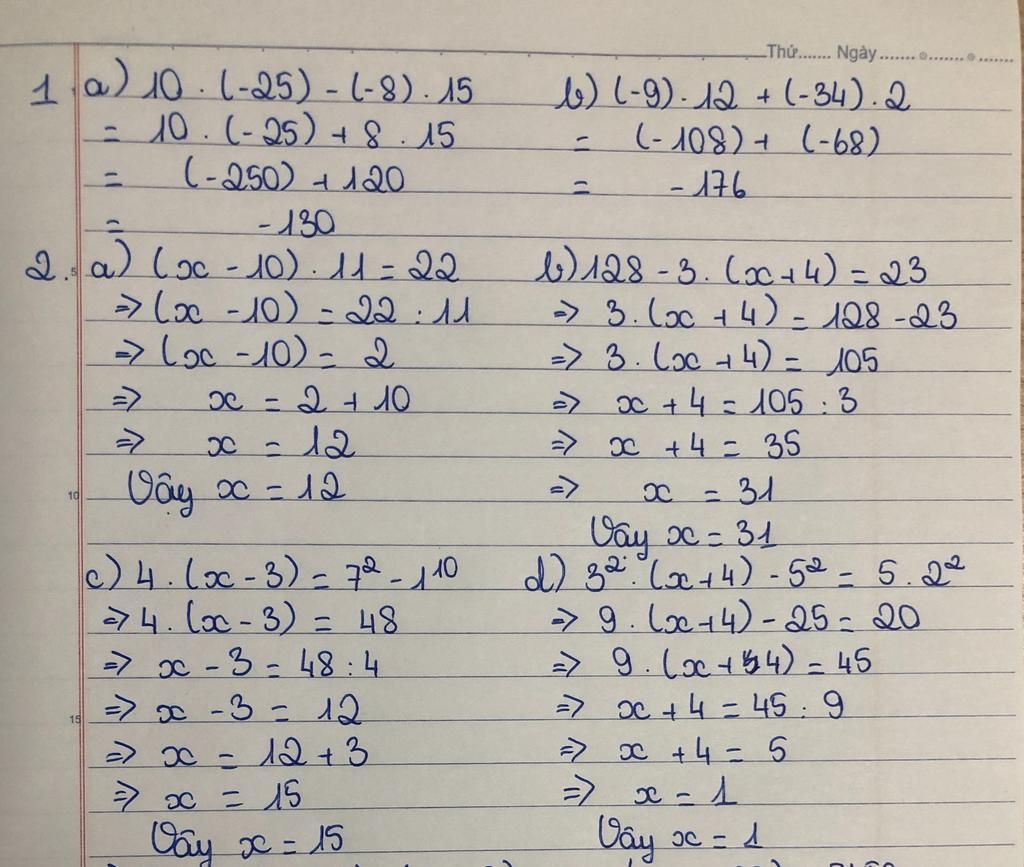 Thứ...... Ngày ....... ........ .......
1 a) 10 . (-25) - (-8) . 15
= 10 . (-25) + 8 . 15
= (-250) + 120
= -130
b) (-9) . 12 + (-34) . 2
= (-108) + (-68)
= -176
2. a) (x - 10) . 11 = 22
=> (x - 10) = 22 : 11
=> (x - 10) = 2
=> x = 2 + 10
=> x = 12
Vậy x = 12
b) 128 - 3 . (x + 4) = 23
=> 3 . (x + 4) = 128 - 23
=> 3 . (x + 4) = 105
=> x + 4 = 105 : 3
=> x + 4 = 35
=> x = 31
Vây x = 31
c) 4 . (x - 3) = 7² - 1¹⁰
=> 4 . (x - 3) = 48
=> x - 3 = 48 : 4
=> x - 3 = 12
=> x = 12 + 3
=> x = 15
Vây x = 15
d) 3² . (x + 4) - 5² = 5 . 2²
=> 9 . (x + 4) - 25 = 20
=> 9 . (x + 4) = 45
=> x + 4 = 45 : 9
=> x + 4 = 5
=> x = 1
Vây x = 1
5
10
15